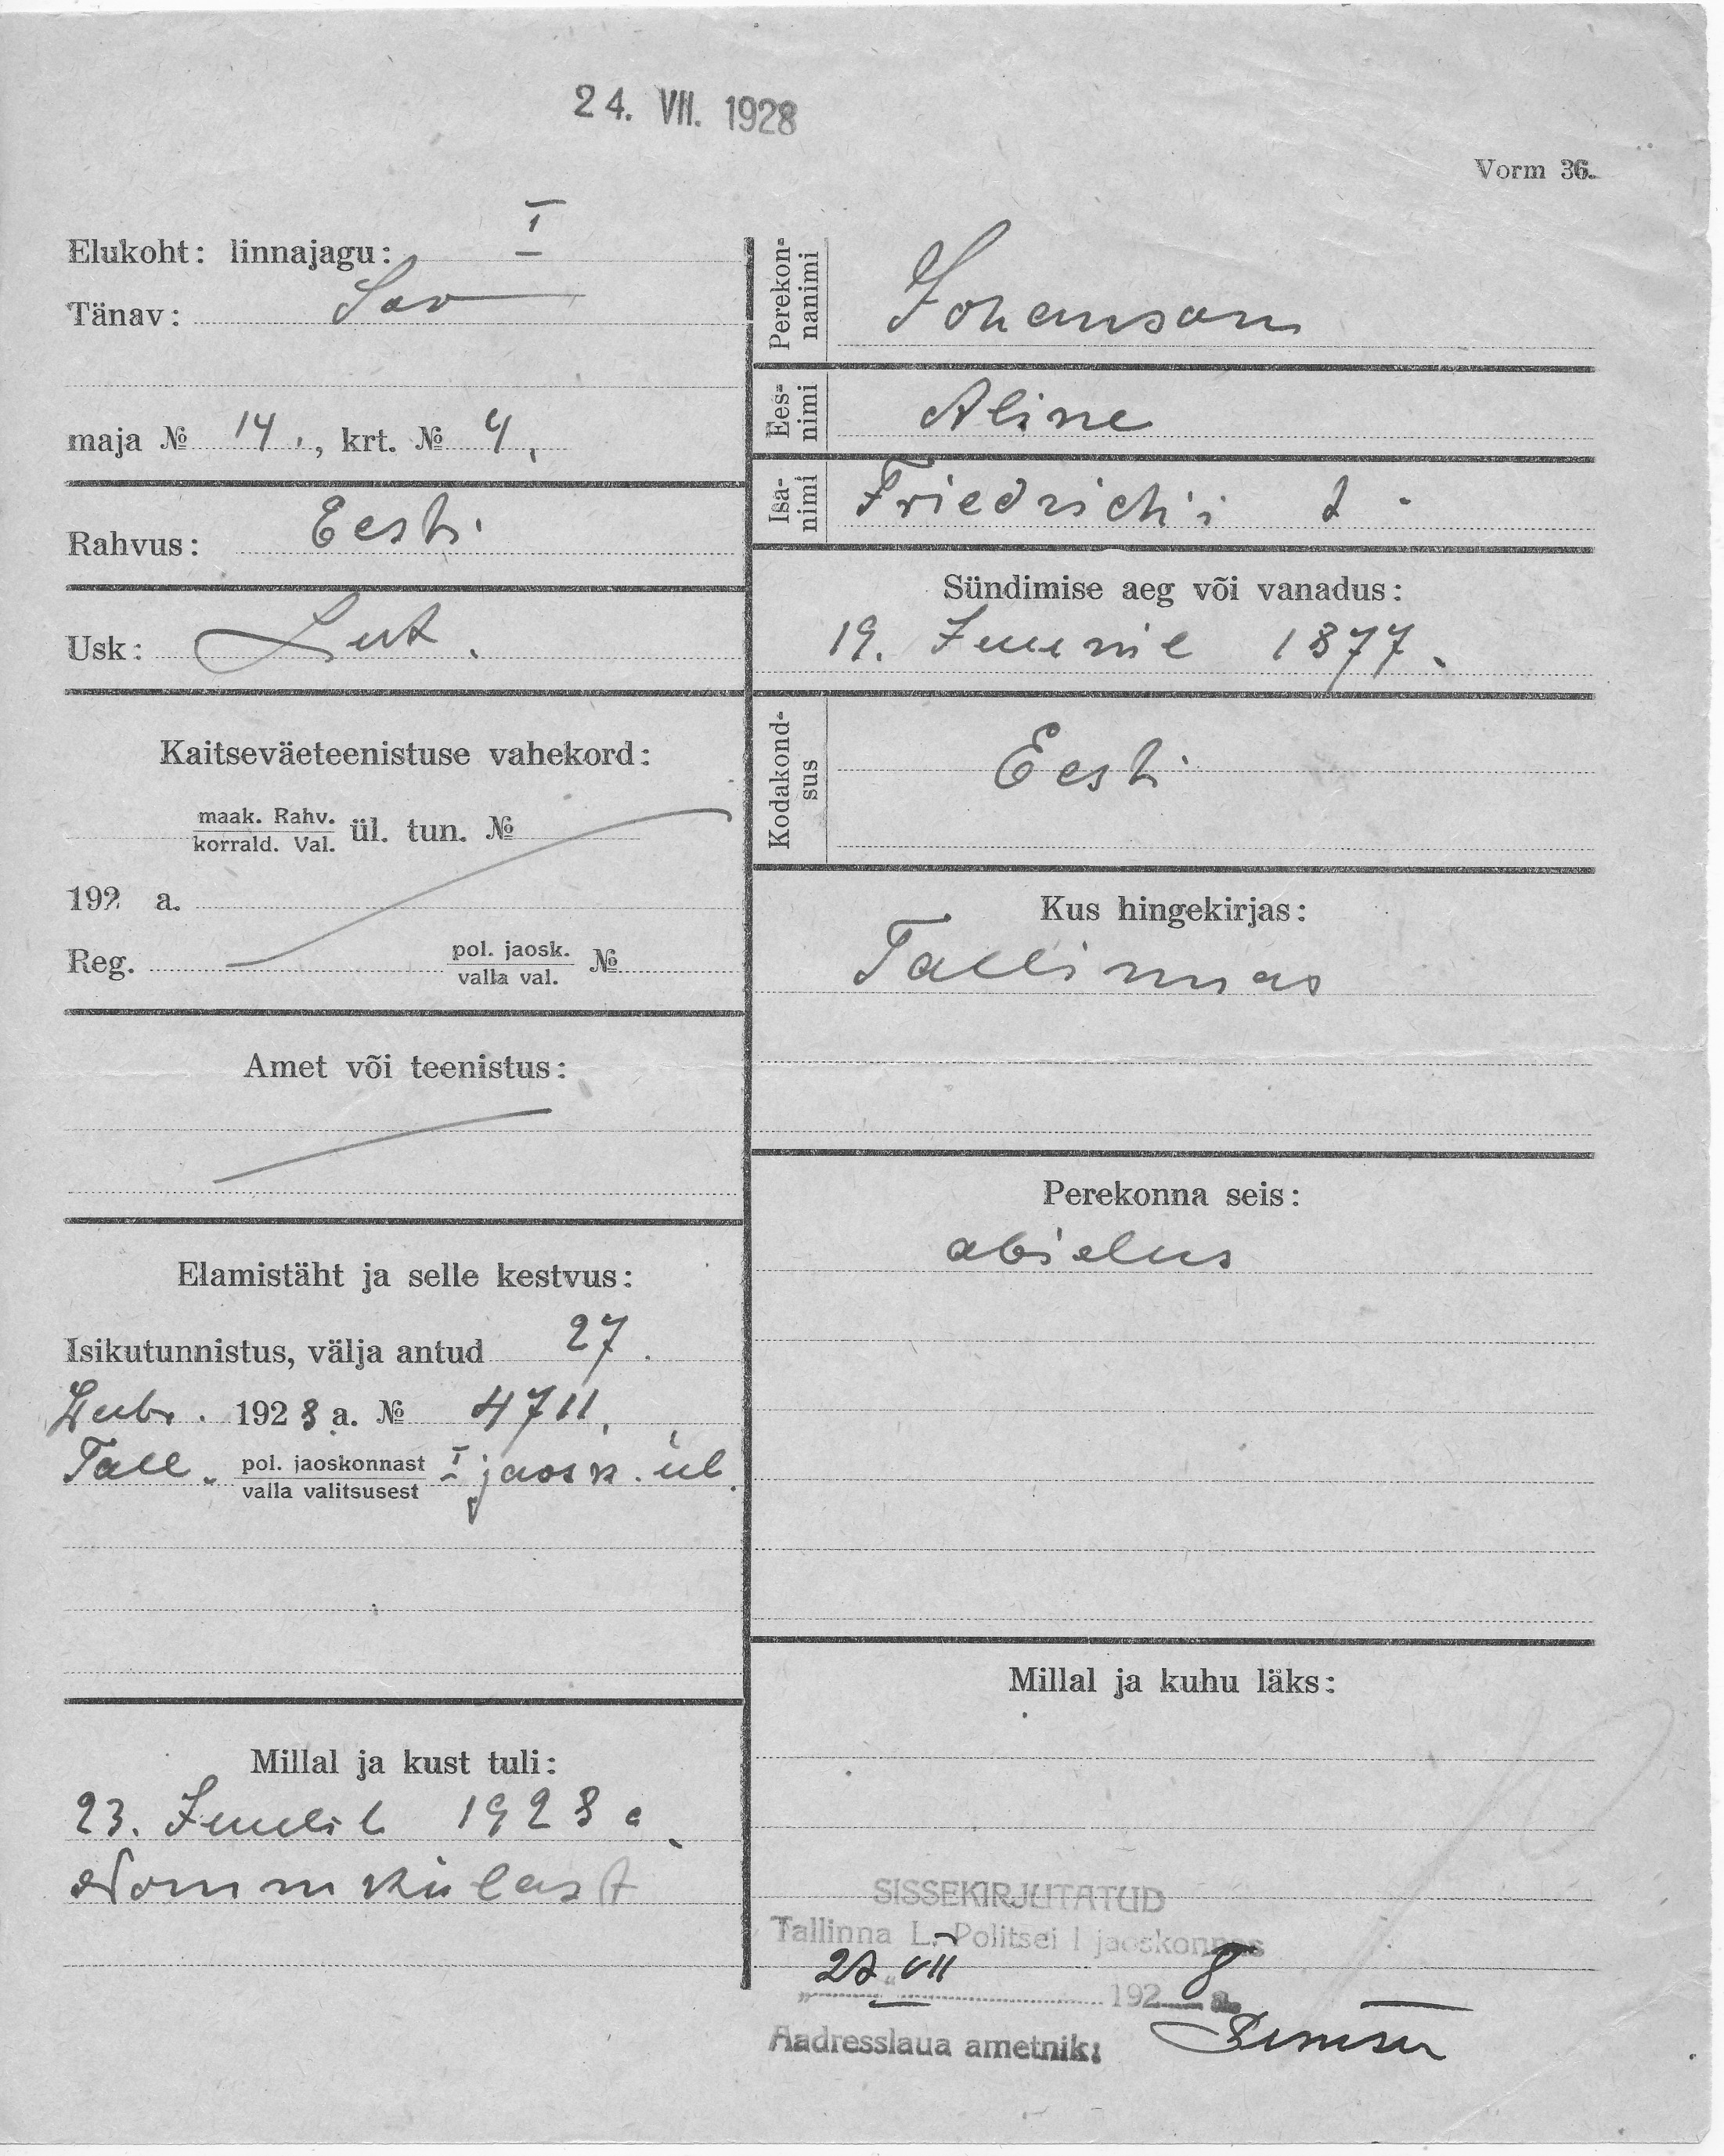 24. VII. 1928
Vorm 36.
Elukoht: linnajagu: I
Tänav:
maja № 14., krt. № 4,
Rahvus: Eesti
Usk: Lut.
Kaitseväeteenistuse vahekord:
maak. Rahv.
korrald. Val. ül. tun. №
192 a.
Reg. pol. jaosk.
valla val. №
Amet või teenistus:
Elamistäht ja selle kestvus:
Isikutunnistus, välja antud 27.
1928 a. № 4711,
Tall. pol. jaoskonnast I jaosk. ül.
valla valitsusest
Millal ja kust tuli:
23. Juulil 1928 a.
Nõmmkülast
Perekon-
nanimi
Johanson
Ees-
nimi
Aline
Isa-
nimi
Friedrich'i t.
Sündimise aeg või vanadus:
19. Juunil 1877.
Kodakond-
sus
Eesti
Kus hingekirjas:
Tallinnas
Perekonna seis:
abielus
Millal ja kuhu läks:
SISSEKIRJUTATUD
Tallinna L. Politsei I jaoskonnas
VII 1928 a.
Aadresslaua ametnik: